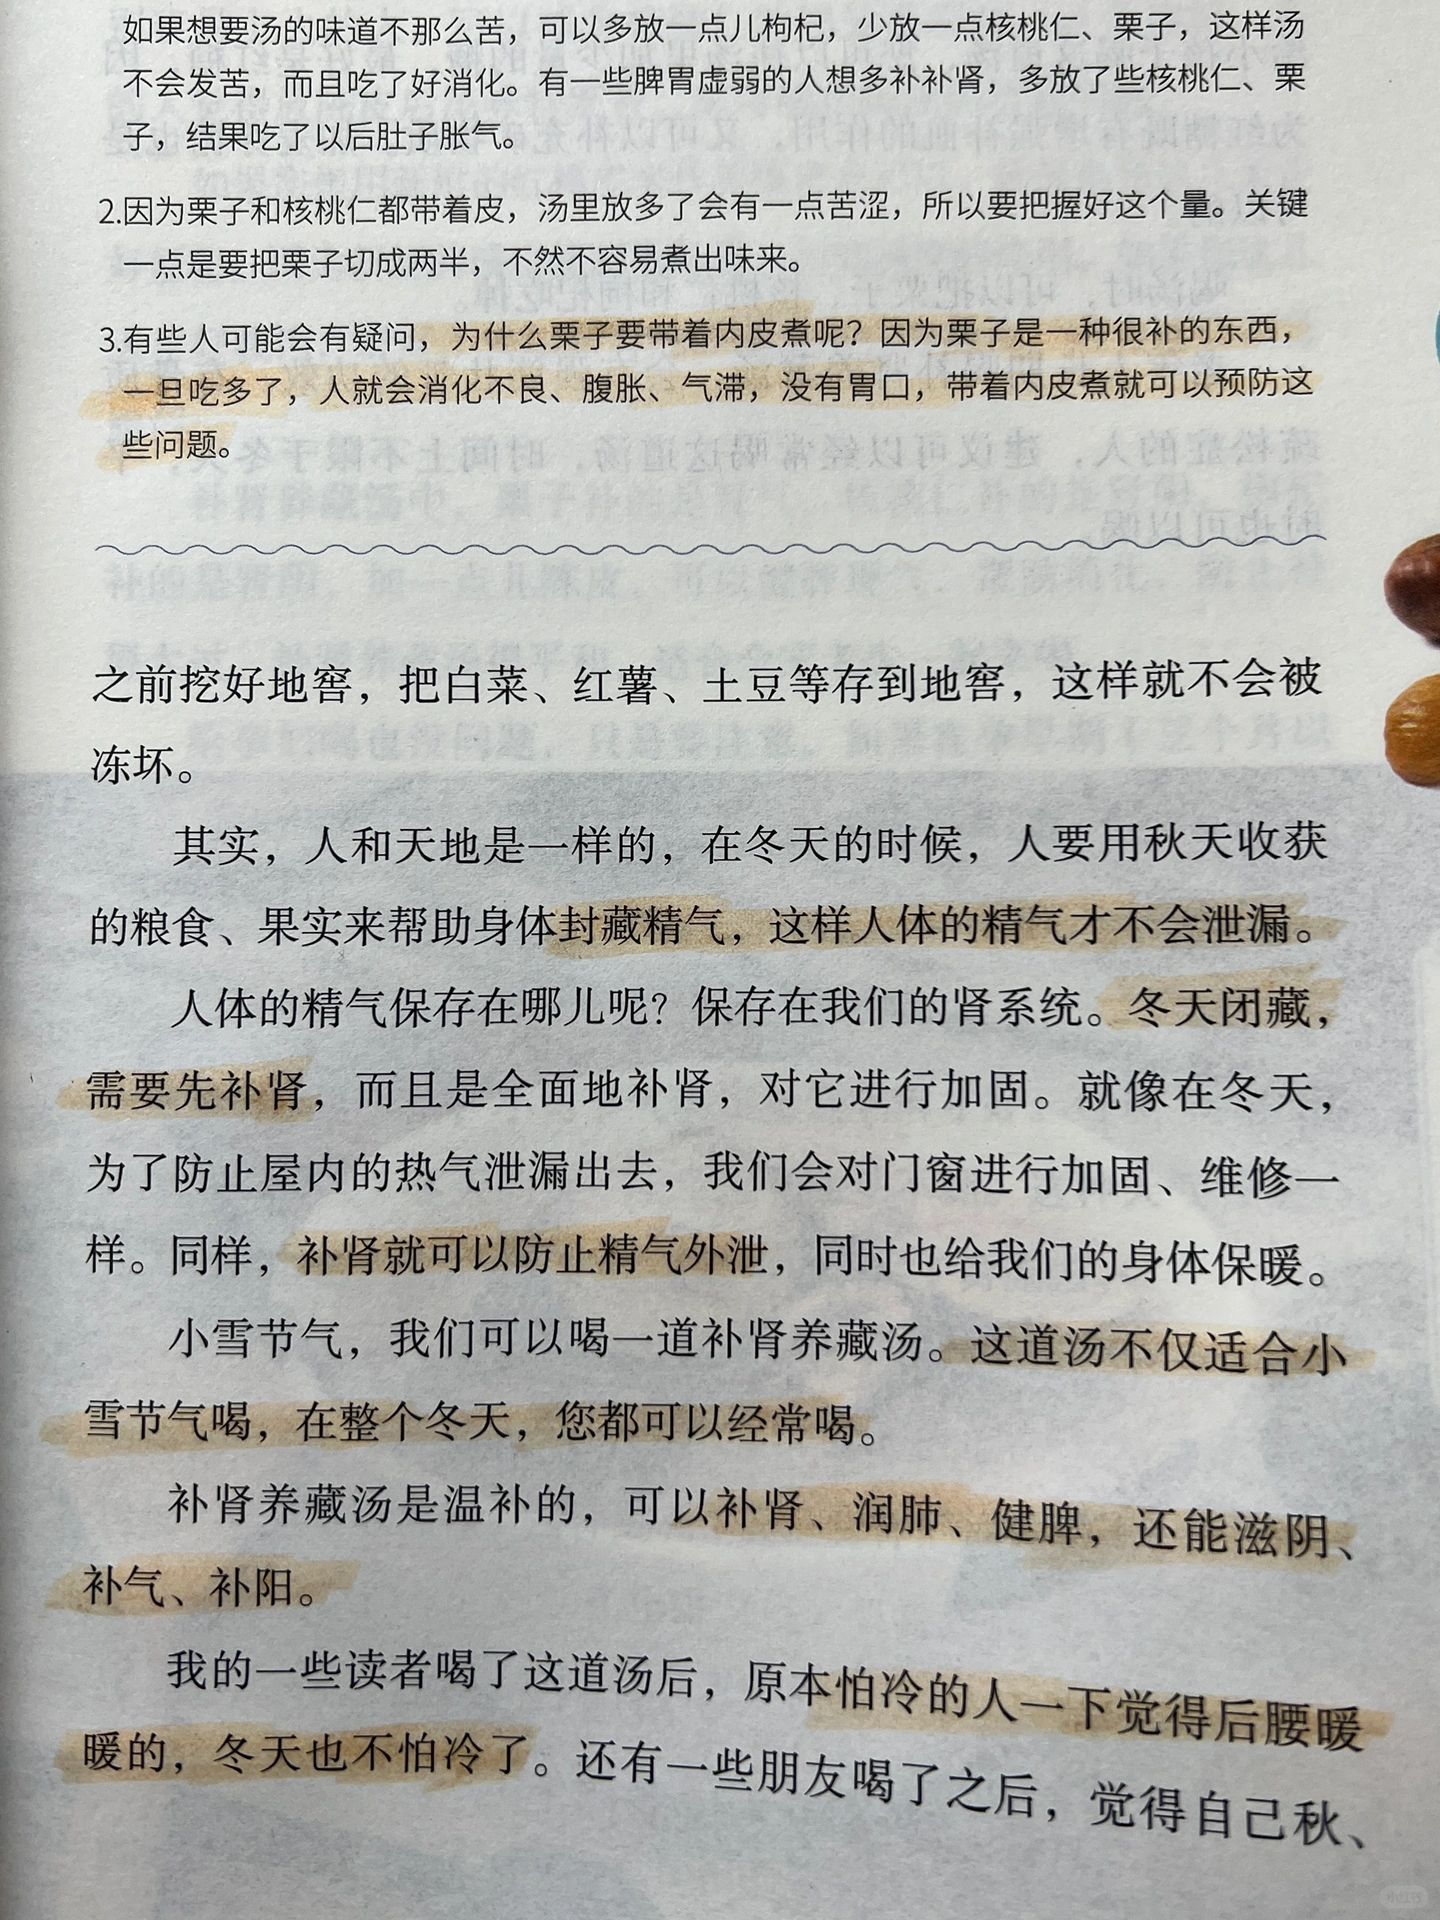 如果想要汤的味道不那么苦，可以多放一点儿枸杞，少放一点核桃仁、栗子，这样汤
不会发苦，而且吃了好消化。有一些脾胃虚弱的人想多补补肾，多放了些核桃仁、栗
子，结果吃了以后肚子胀气。
2.因为栗子和核桃仁都带着皮，汤里放多了会有一点苦涩，所以要把握好这个量。关键
一点是要把栗子切成两半，不然不容易煮出味来。
3.有些人可能会有疑问，为什么栗子要带着内皮煮呢？因为栗子是一种很补的东西，
一旦吃多了，人就会消化不良、腹胀、气滞，没有胃口，带着内皮煮就可以预防这
些问题。
之前挖好地窖，把白菜、红薯、土豆等存到地窖，这样就不会被
冻坏。
其实，人和天地是一样的，在冬天的时候，人要用秋天收获
的粮食、果实来帮助身体封藏精气，这样人体的精气才不会泄漏。
人体的精气保存在哪儿呢？保存在我们的肾系统。冬天闭藏，
需要先补肾，而且是全面地补肾，对它进行加固。就像在冬天，
为了防止屋内的热气泄漏出去，我们会对门窗进行加固、维修一
样。同样，补肾就可以防止精气外泄，同时也给我们的身体保暖。
小雪节气，我们可以喝一道补肾养藏汤。这道汤不仅适合小
雪节气喝，在整个冬天，您都可以经常喝。
补肾养藏汤是温补的，可以补肾、润肺、健脾，还能滋阴、
补气、补阳。
我的一些读者喝了这道汤后，原本怕冷的人一下觉得后腰暖
暖的，冬天也不怕冷了。还有一些朋友喝了之后，觉得自己秋、
小红书